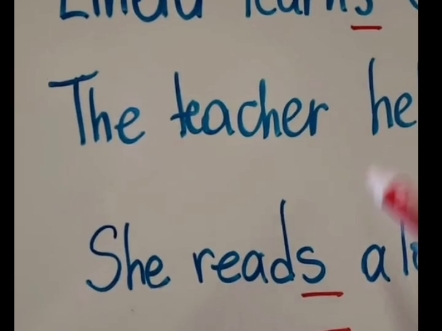 learns
The teacher he
She reads a l